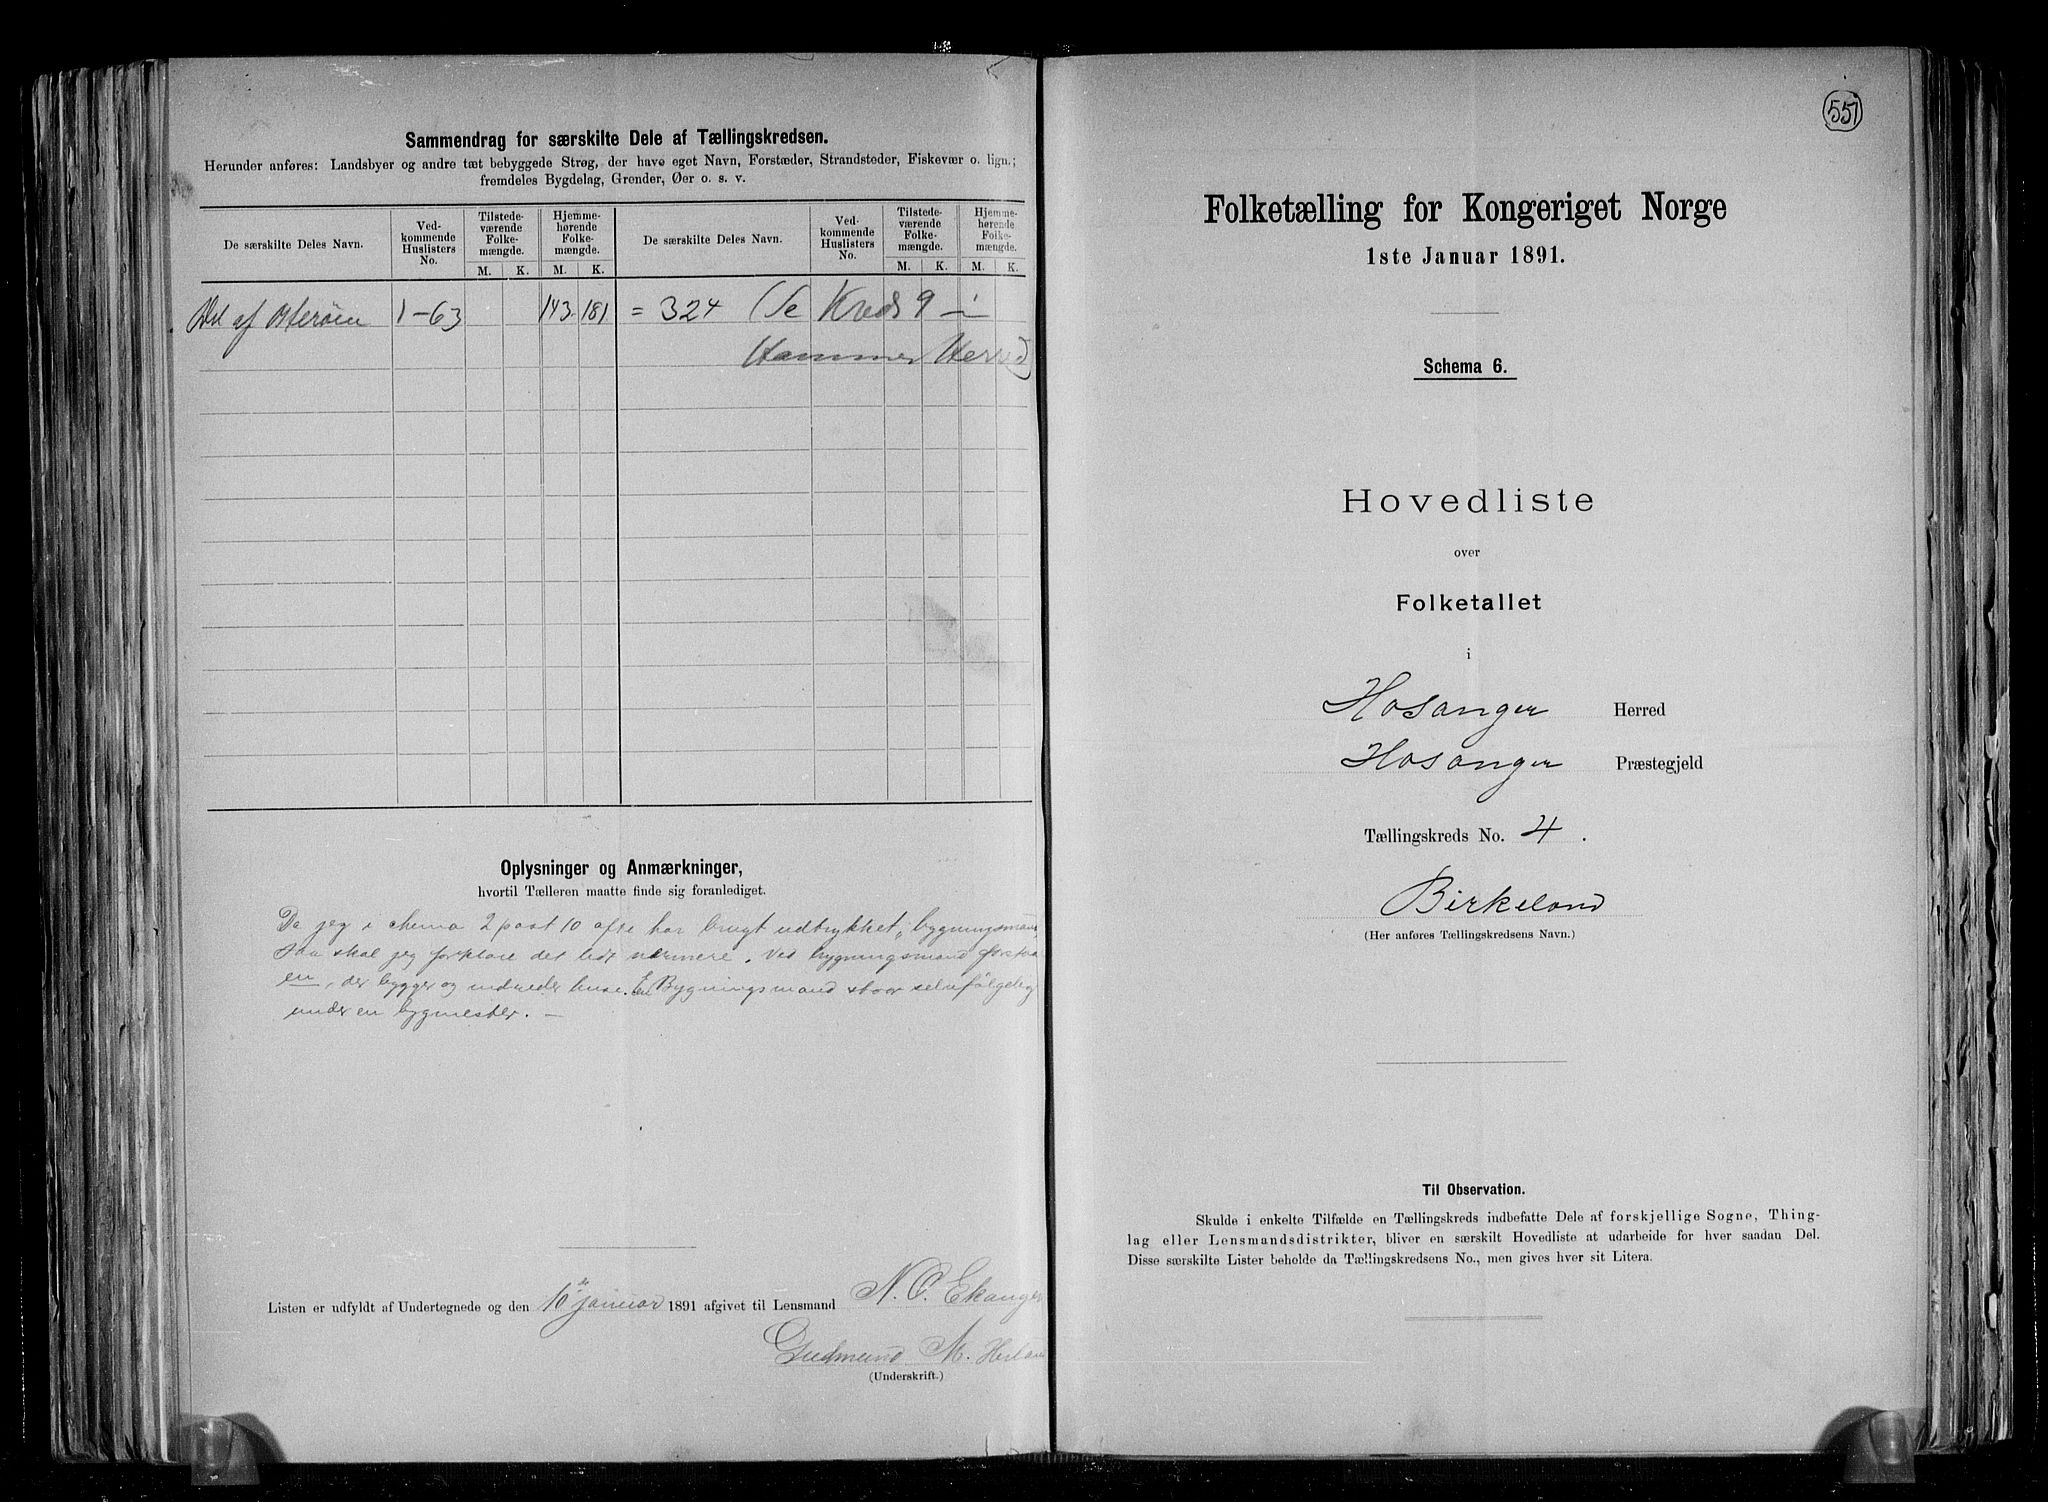 Sammendrag for særskilte Dele af Tællingskredsen.
Herunder anføres: Landsbyer og andre tæt bebyggede Strøg, der have eget Navn, Forstæder, Strandsteder, Fiskevær o. lign.;
fremdeles Bygdelag, Grender, Øer o. s. v.
De særskilte Deles Navn.
Ved-
kommende
Huslisters
No.
Tilstede-
værende
Folke-
mængde.
Hjemme-
hørende
Folke-
mængde.
De særskilte Deles Navn.
Ved-
kommende
Huslisters
No.
Tilstede-
værende
Folke-
mængde.
Hjemme-
hørende
Folke-
mængde.
M. K. M. K. M. K. M. K.
Del af Osterøen 1-63 143 181 = 324 (Se Kreds 9 i
Hammer Herred)
Oplysninger og Anmærkninger,
hvortil Tælleren maatte finde sig foranlediget.
Da jeg i chema 2 post 10 ofte har brugt udtrykket „bygningsmand"
saa skal jeg forklare det lidt nærmere. Ved bygningsmand forstaa
en, der bygger og indreder huse. En Bygningsmand staar selvfølgelig
under en bygmester. —
Listen er udfyldt af Undertegnede og den 10de januar 1891 afgivet til Lensmand N. C. Ekanger
Gudmund M. Herland
(Underskrift.)
551
Folketælling for Kongeriget Norge
1ste Januar 1891.
Schema 6.
Hovedliste
over
Folketallet
i
Hosanger Herred
Hosanger Præstegjeld
Tællingskreds No. 4.
Birkeland
(Her anføres Tællingskredsens Navn.)
Til Observation.
Skulde i enkelte Tilfælde en Tællingskreds indbefatte Dele af forskjellige Sogne, Thing-
lag eller Lensmandsdistrikter, bliver en særskilt Hovedliste at udarbeide for hver saadan Del.
Disse særskilte Lister beholde da Tællingskredsens No., men gives hver sit Litera.